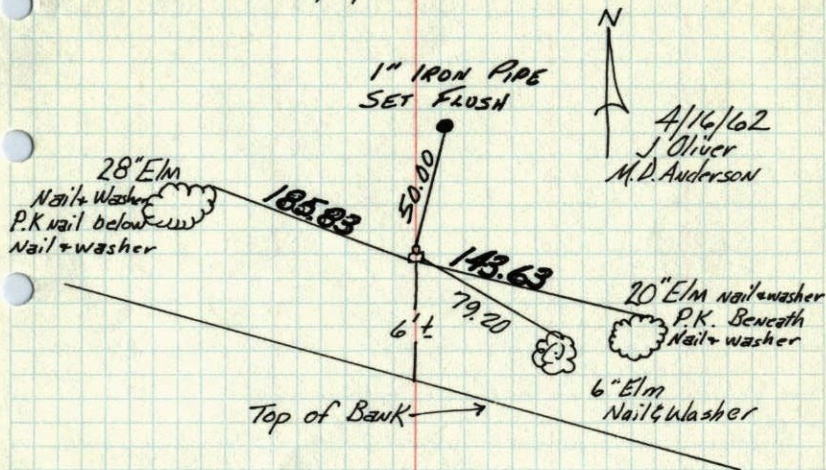 N
1" IRON PIPE
SET FLUSH
4/16/62
J Oliver
M.D. Anderson
28" Elm
Nail & Washer
P.K nail below
Nail & washer
185.83
50.00
143.63
79.20
6'±
20" Elm nail & washer
P.K. Beneath
Nail & washer
6" Elm
Nail & Washer
Top of Bank